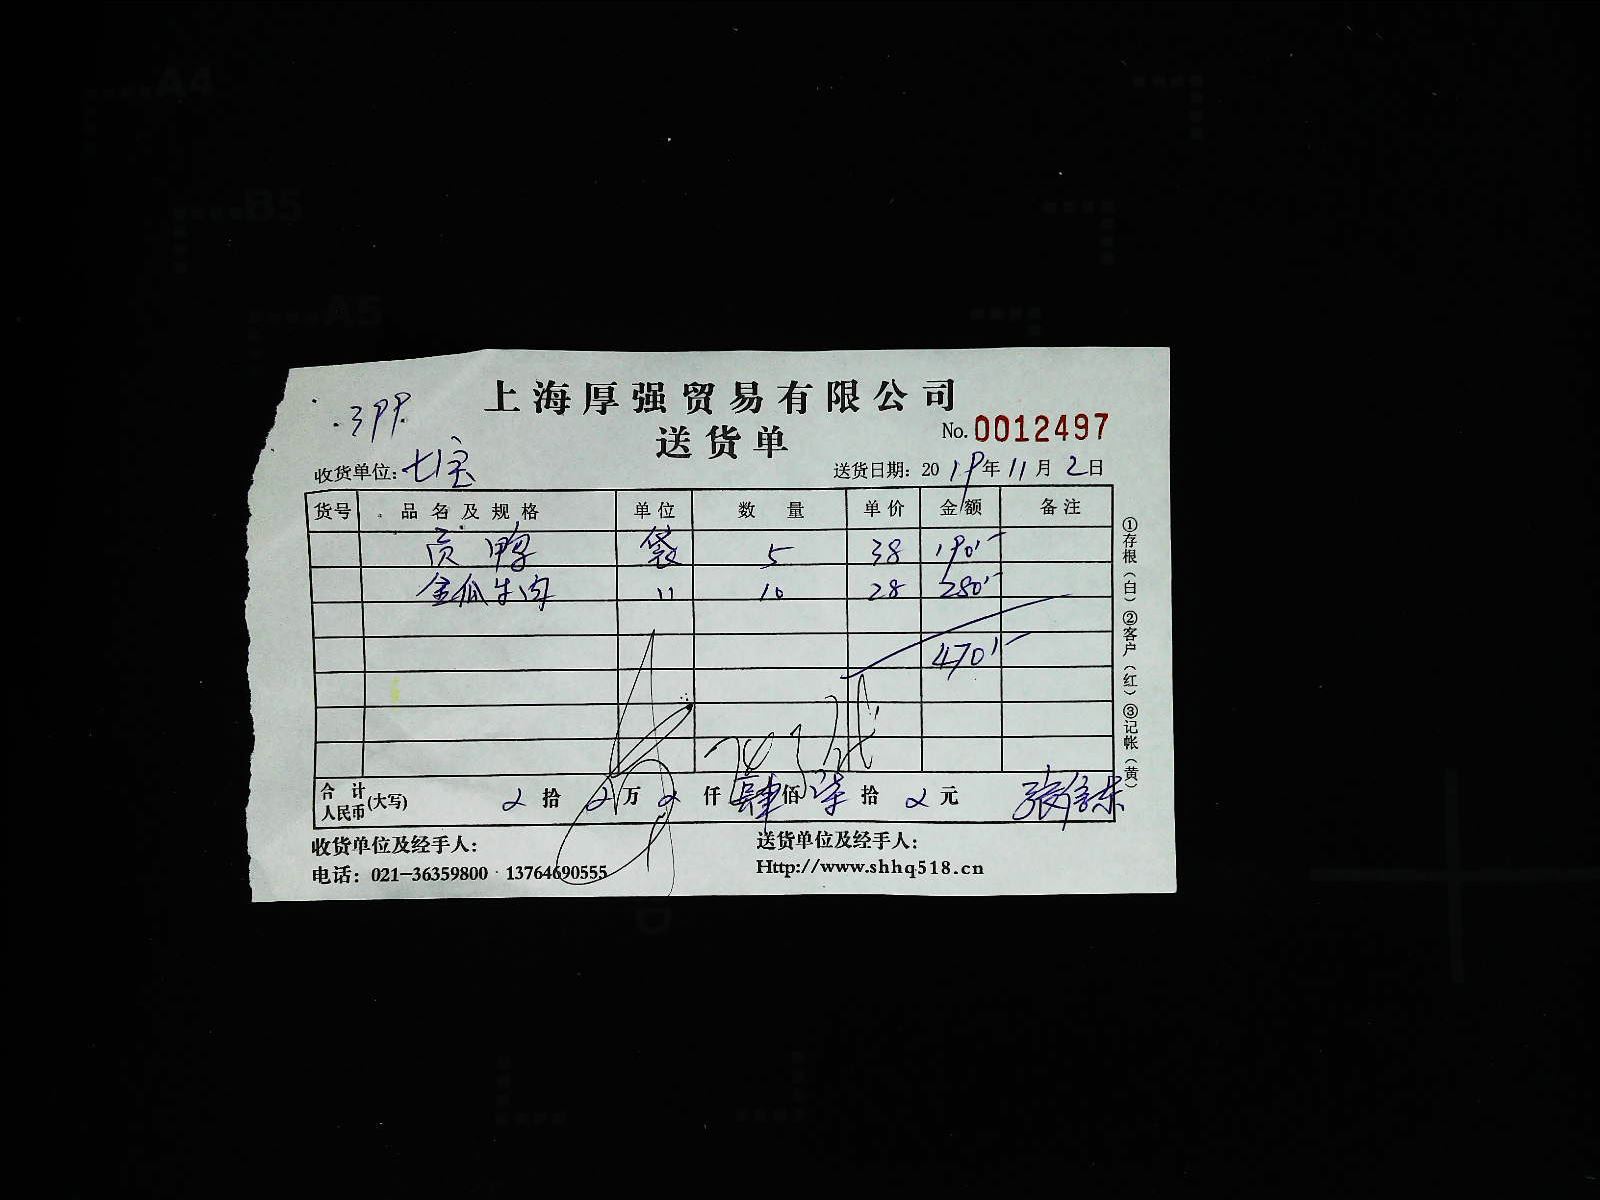 上海厚强贸易有限公司
399
送货单
No. 0012497
收货单位: 七宝
送货日期: 2019年11月2日
货号 品名及规格 单位 数量 单价 金额 备注
贡鸭 袋 5 38 190.-
金瓜牛肉 〃 10 28 280.-
470.-
合计人民币(大写) 拾 万 仟 肆佰 柒拾 元 张
收货单位及经手人:
送货单位及经手人:
电话: 021-36359800 13764690555
Http://www.shhq518.cn
①存根(白)②客户(红)③记帐(黄)
A4
B5
A5